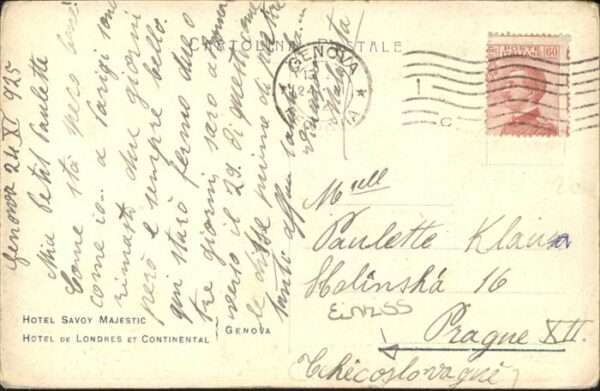 CARTOLINA POSTALE
GENOVA
POSTE ITALIANE 60
Genova 24 XI 925
Mia Petit Paulette
Come sta spero bene
come io... a Parigi sono
rimasto due giorni
però è sempre bello.
qui starò fermo due o
tre giorni sarò a Roma
verso il 29 di questo come
le dissi prima di
tanto
Mlle
Paulette
Holinská 16
Prague XII.
Tchécoslovaquie
HOTEL SAVOY MAJESTIC
HOTEL DE LONDRES ET CONTINENTAL
GENOVA